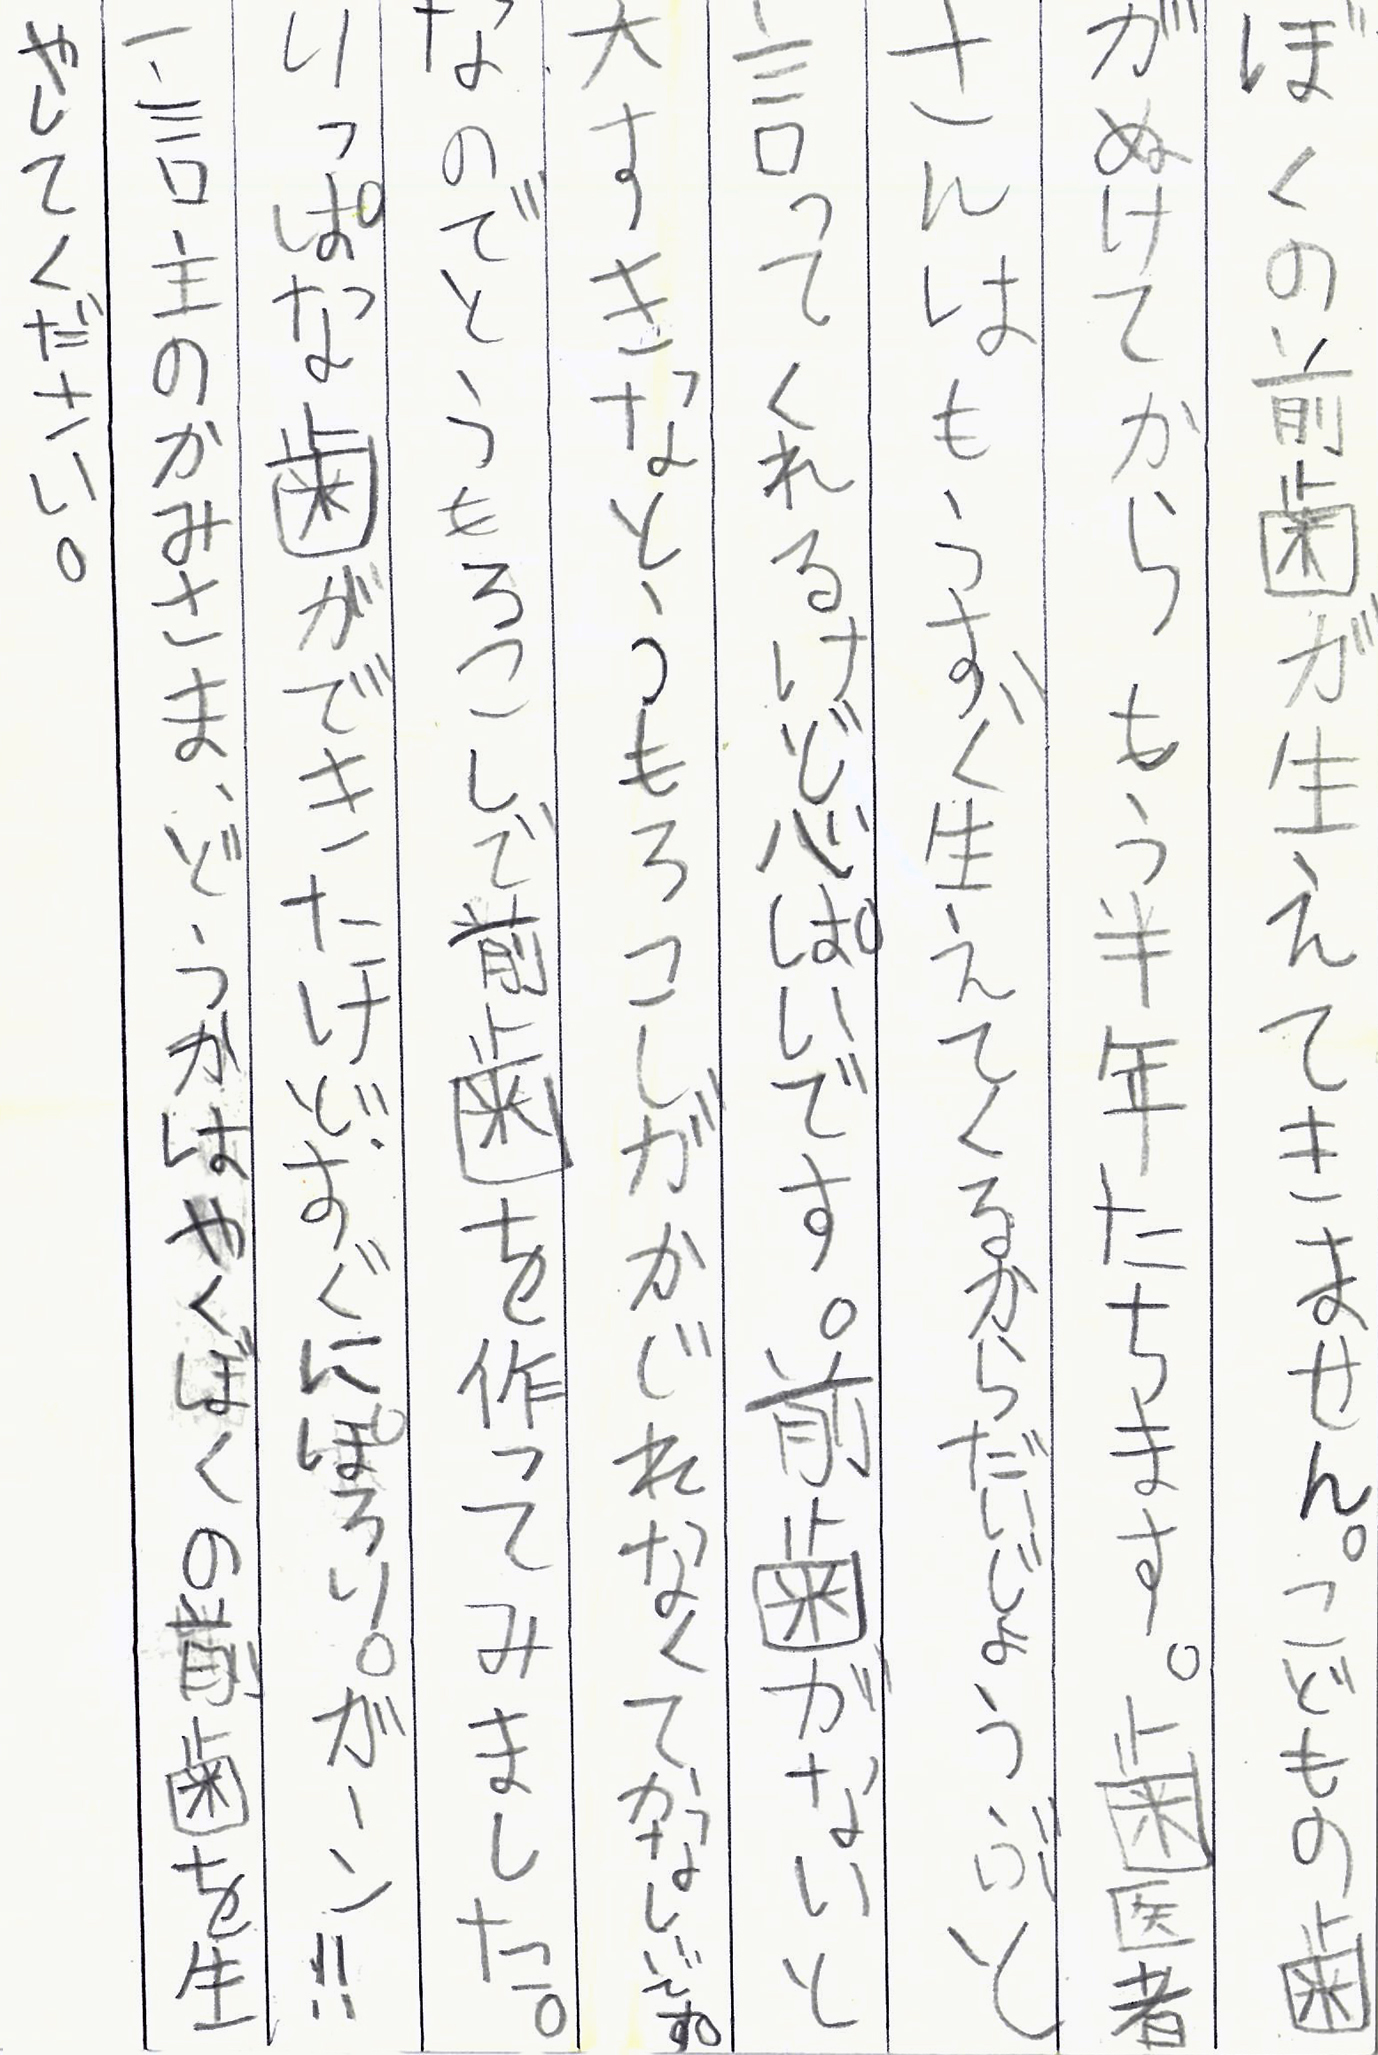 ぼくの前歯が生えてきません。こどもの歯
がぬけてからもう半年たちます。歯医者
さんはもうすぐ生えてくるからだいじょうぶと
言ってくれるけど心ぱいです。前歯がないと
大すきなとうもろこしがかじれなくてかなしいです。
なのでとうもろこしで前歯を作ってみました。
りっぱな歯ができたけどすぐにぽろり。ガーン!!
一言主のかみさま、どうかはやくぼくの前歯を生
やしてください。